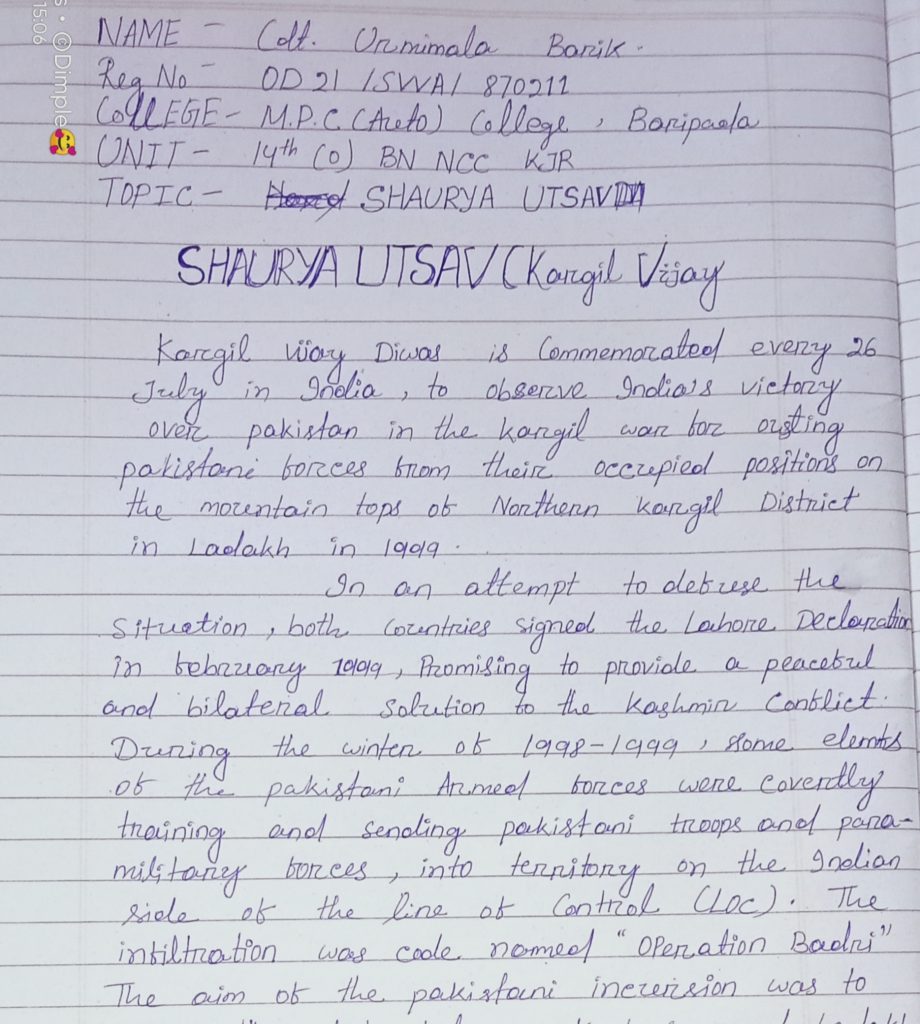 NAME - Cdt. Urmimala Barik.
Reg No - OD 21 / SWA / 870211
COllEGE - M.P.C (Auto) College, Baripada
UNIT - 14th (O) BN NCC KJR
TOPIC - SHAURYA UTSAV
SHAURYA UTSAV (Kargil Vijay
Kargil Vijay Diwas is Commemorated every 26
July in India, to observe India's victory
over pakistan in the kargil war for ousting
pakistani forces from their occupied positions on
the mountain tops of Northern kargil District
in Ladakh in 1999.
In an attempt to defuse the
Situation, both countries signed the Lahore Declaration
in february 1999, Promising to provide a peaceful
and bilateral solution to the Kashmir Conflict.
During the winter of 1998-1999, some elemts
of the pakistani Armed forces were covertly
training and sending pakistani troops and para-
military forces, into territory on the Indian
side of the line of Control (LOC). The
infiltration was code named "Operation Badri"
The aim of the pakistani incursion was to
15:06
©Dimple